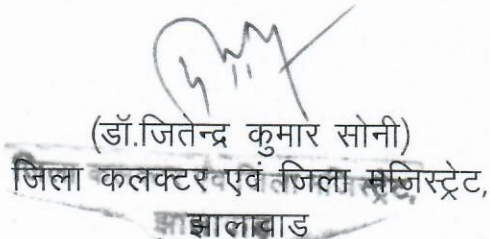 (डॉ.जितेन्द्र कुमार सोनी)
जिला कलक्टर एवं जिला मजिस्ट्रेट,
झालावाड